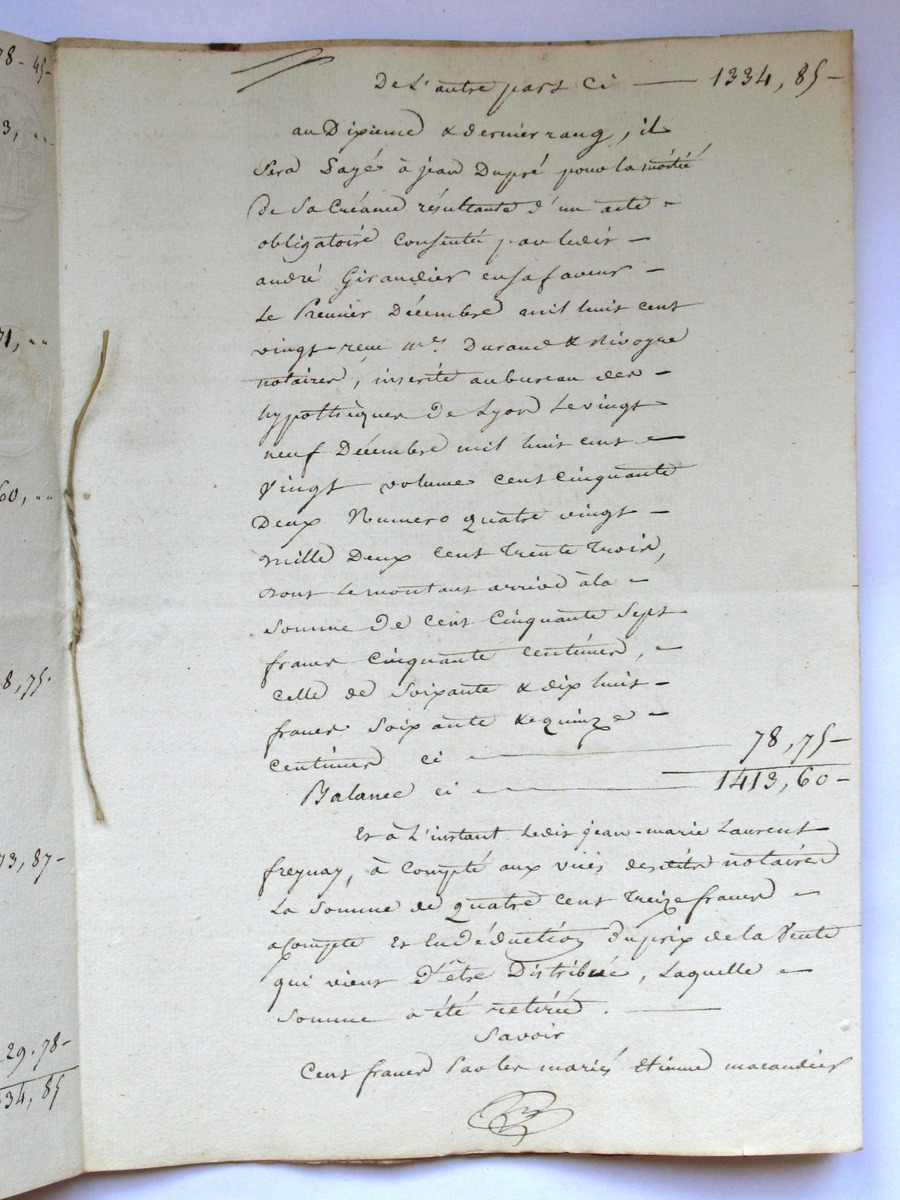 De L'autre part Ci — 1334, 85 –
au Dixieme & dernier rang, il
Sera Payé à jean Dupré pour la moitié
De Sa Créance résultante d'un acte –
obligatoire Consenti par ledit –
andré Giraudier en sa faveur –
Le Premier Décembre mil huit cent
vingt reçu Mes. Durand &
notaires, inscrite au bureau des –
hypothèques de Lyon Le vingt
neuf Décembre mil huit cent –
Vingt volume cent cinquante
Deux Numero quatre vingt –
mille Deux cent trente trois,
dont le montant arrive à la –
Somme De cent Cinquante Sept
francs cinquante centimes, –
celle de Soixante & dix huit –
francs Soixante & quinze –
centimes ci — 78, 75 –
Balance ci — 1413, 60 –
Et à L'instant Ledit jean-marie Laurent
à Compté aux vues desdits notaires
La Somme de quatre cent treize francs –
acompte Et En Déduction Du prix de la Vente
qui vient D'être Distribuée, Laquelle –
Somme a été retirée. —
Savoir
Cent francs Par les mariés Etienne
78 – 45 –
3, ..
71, ..
60, ..
8, 75.
73, 87 –
29. 78 –
34, 85